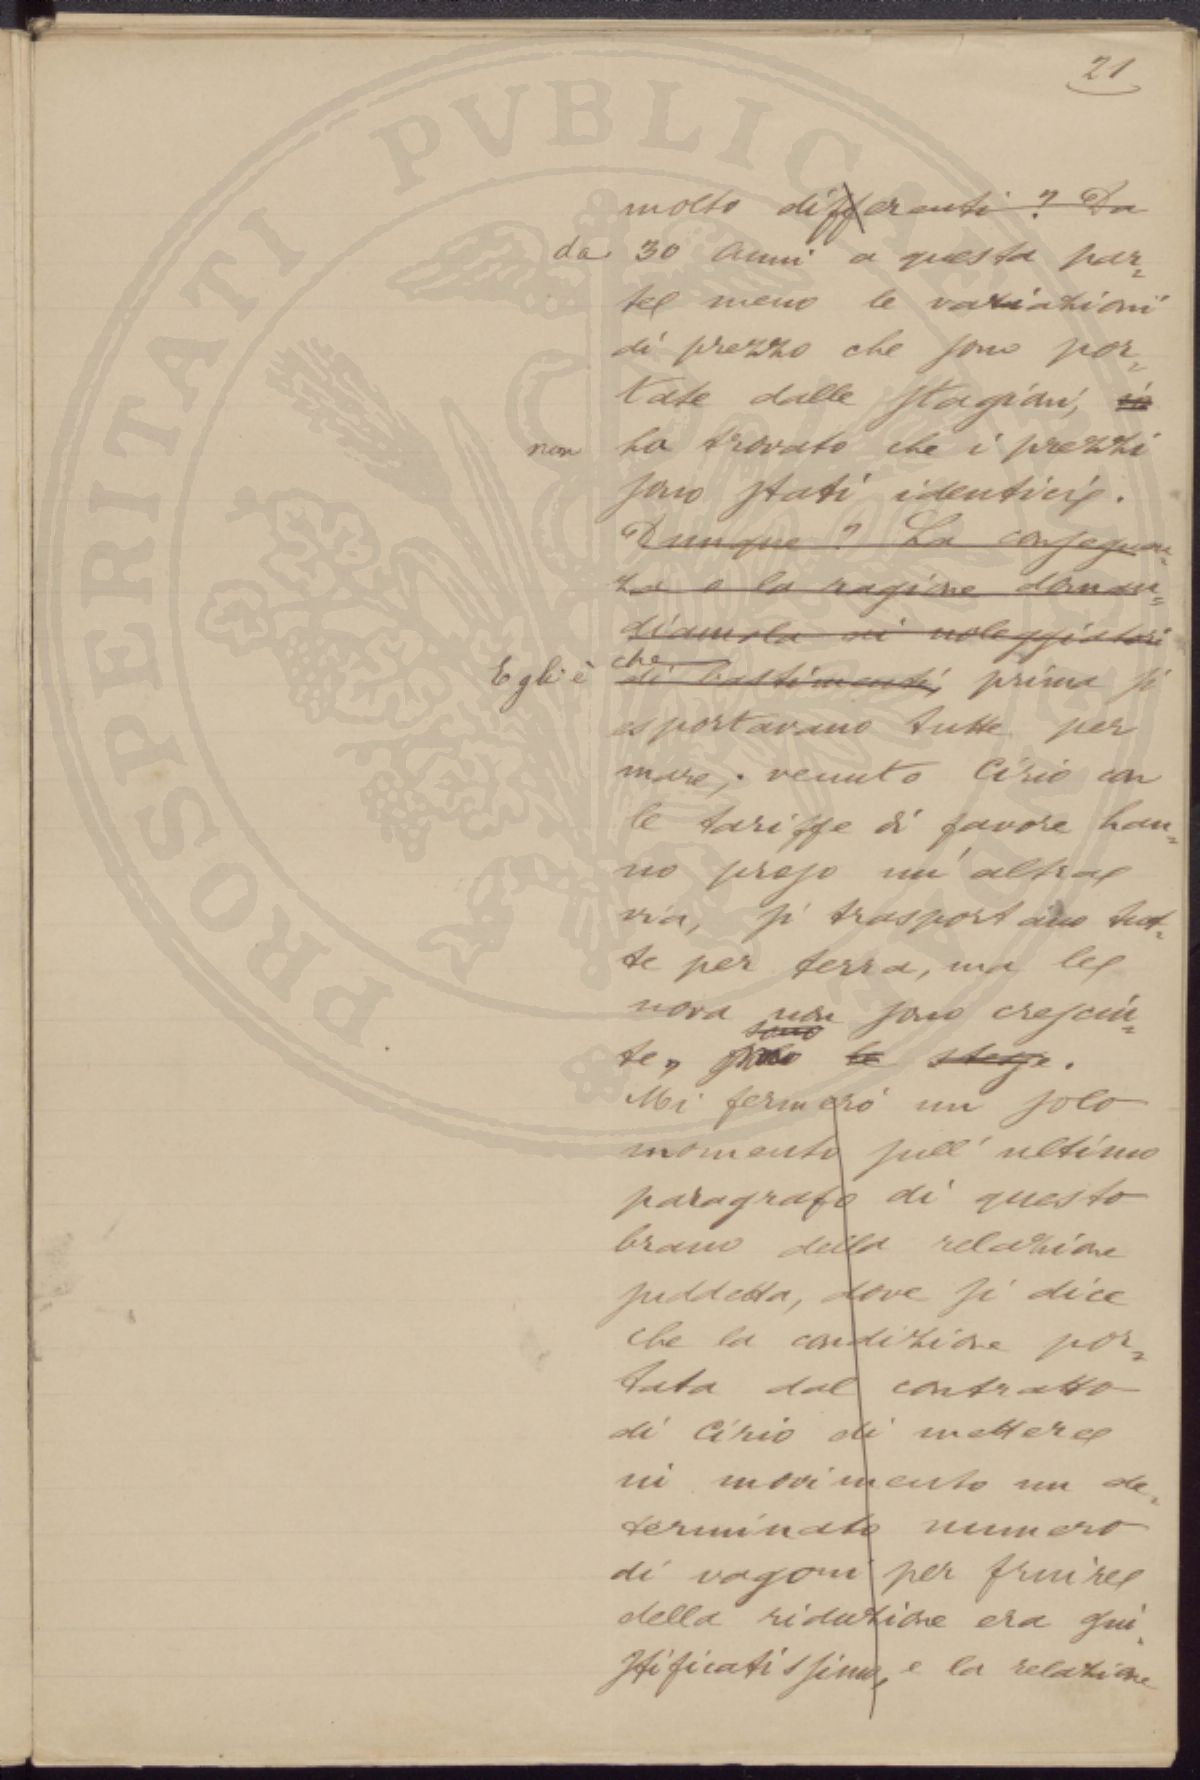 21
molto differenti? Da
da 30 anni a questa par=
te meno le variazioni
di prezzo che sono por=
tate dalle stagioni, si
non ha trovato che i prezzi
sono stati identici.
Dunque? La conseguen=
za e la ragione doman=
diamola ai noleggiatori
Egli è che di bastimenti, prima si
esportavano tutte per
mare, venuto Cirio con
le tariffe di favore han=
no preso un'altra
via, si trasportano tut=
te per terra, ma le
nova non sono cresciu=
te, sono le stesse.
Mi fermerò un solo
momento sull'ultimo
paragrafo di questo
brano della relazione
suddetta, dove si dice
che la condizione por=
tata dal contratto
di Cirio di mettere
in movimento un de=
terminato numero
di vagoni per fruire
della riduzione era giu=
stificatissima, e la relazione
PROSPERITATI PVBLICAE